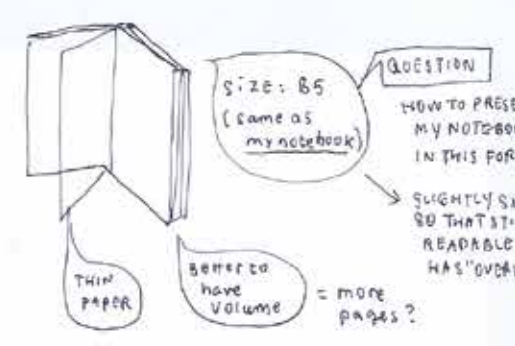 SIZE: B5
(same as
my notebook)
QUESTION
HOW TO PRESE
MY NOTEBOO
IN THIS FOR
SLIGHTLY
SO THAT
READABLE
HAS "OVER
THIN
PAPER
Better to
have
volume
= more
pages?